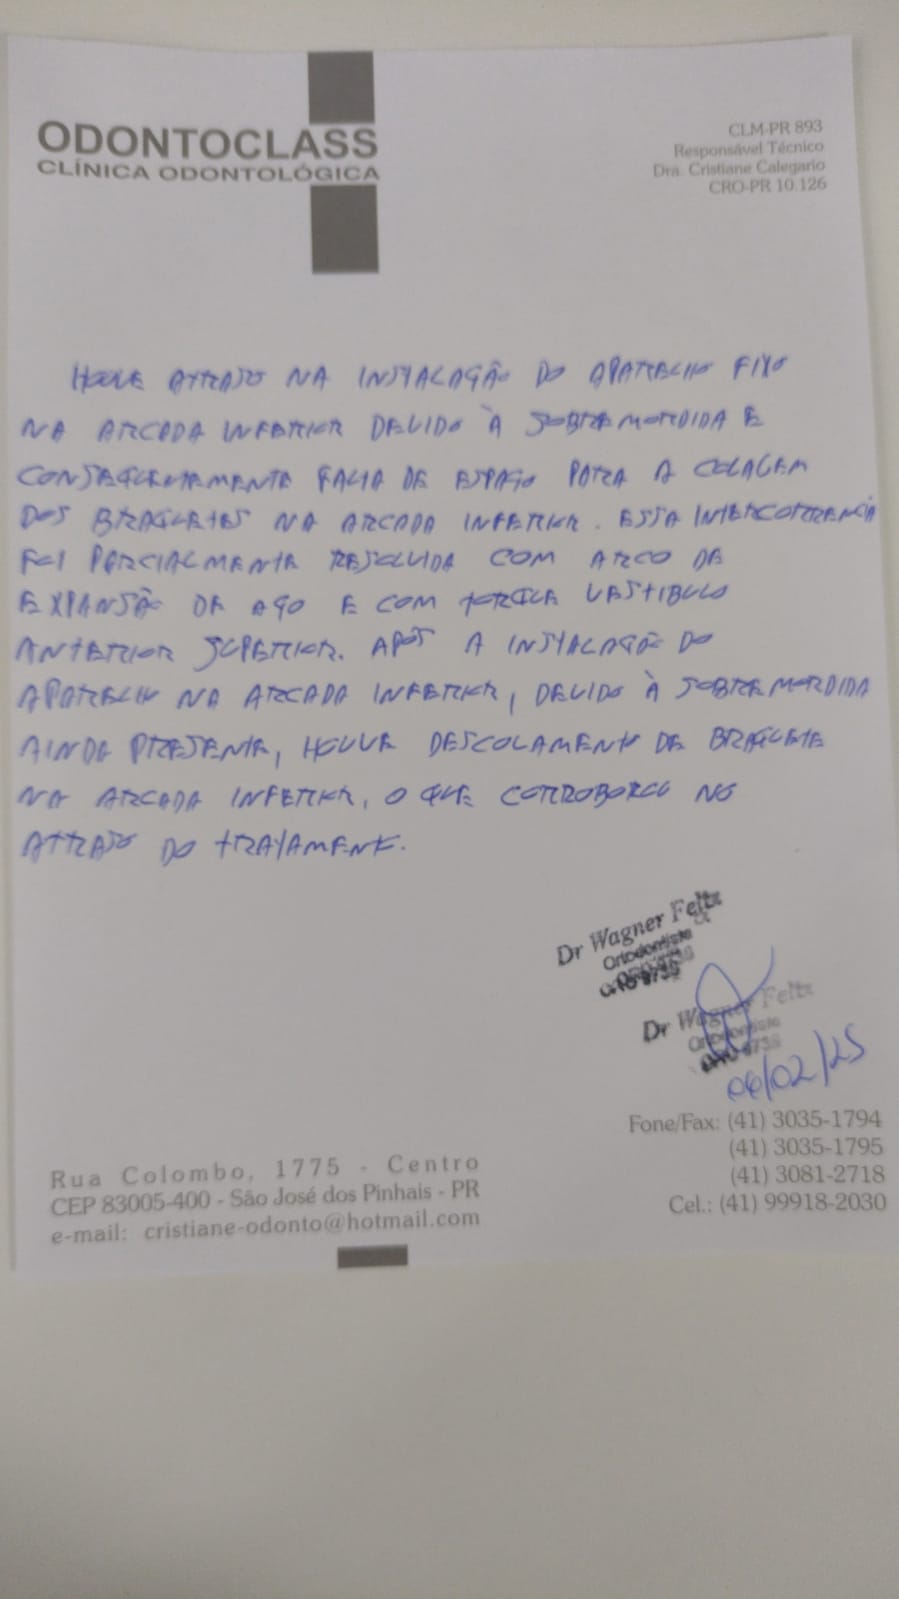 ODONTOCLASS
CLÍNICA ODONTOLÓGICA
CLM-PR 893
Responsável Técnico
Dra. Cristiane Calegario
CRO-PR 10.126
HOUVE ATRASO NA INSTALAÇÃO DO APARELHO FIXO
NA ARCADA INFERIOR DEVIDO À SOBREMORDIDA E
CONSEQUENTEMENTE FALTA DE ESPAÇO PARA A COLAGEM
DOS BRAQUETES NA ARCADA INFERIOR. ESSA INTERCORRENCIA
FOI PARCIALMENTE RESOLVIDA COM ARCO DE
EXPANSÃO DE AÇO E COM TORQUE VESTIBULO
ANTERIOR SUPERIOR. APÓS A INSTALAÇÃO DO
APARELHO NA ARCADA INFERIOR, DEVIDO À SOBREMORDIDA
AINDA PRESENTE, HOUVE DESCOLAMENTO DE BRAQUETE
NA ARCADA INFERIOR, O QUE CORROBOROU NO
ATRASO DO TRATAMENTO.
Dr Wagner Feltz
Ortodontista
Dr Wagner Feltz
Ortodontista
06/02/25
Fone/Fax: (41) 3035-1794
(41) 3035-1795
(41) 3081-2718
Cel.: (41) 99918-2030
Rua Colombo, 1775 - Centro
CEP 83005-400 - São José dos Pinhais - PR
e-mail: cristiane-odonto@hotmail.com